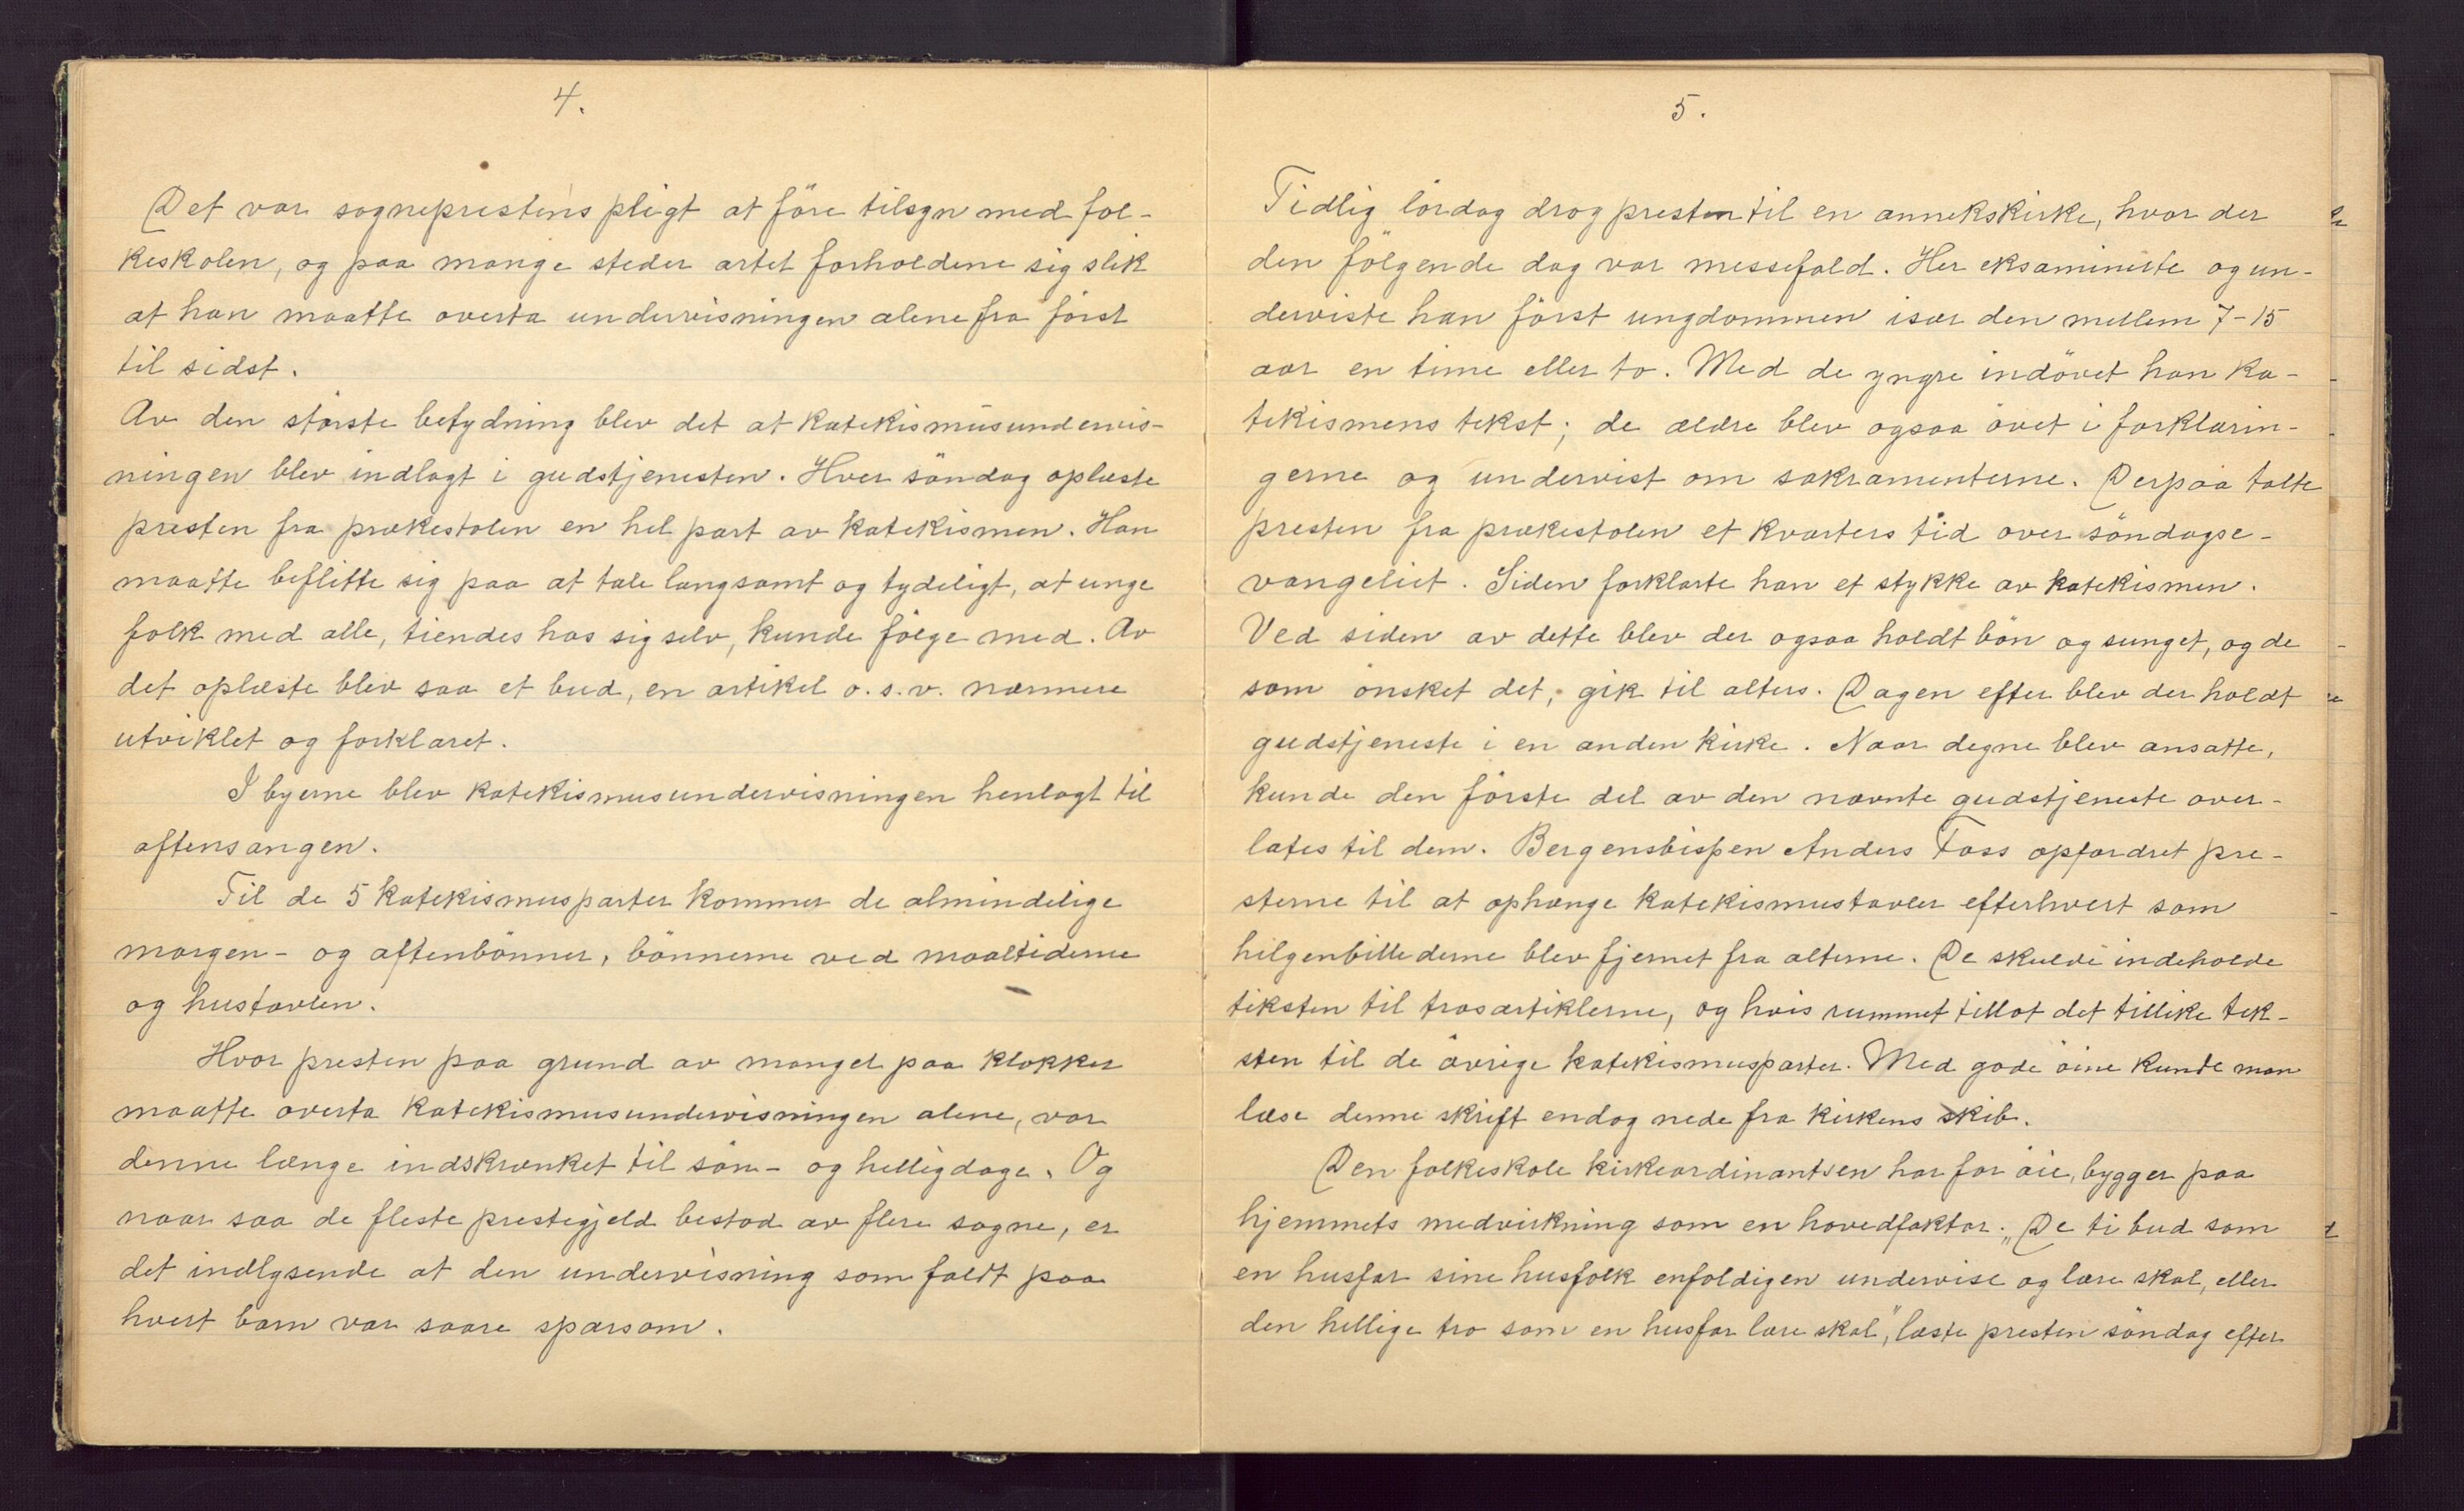 4.
Det var sogneprestens pligt at före tilsyn med fol-
keskolen, og paa mange steder artet forholdene sig slik
at han maatte overta undervisningen alene fra först
til sidst.
Av den störste betydning blev det at katekismusundervis-
ningen blev indlagt i gudstjenesten. Hver söndag oplæste
presten fra prækestolen en hel part av katekismen. Han
maatte beflitte sig paa at tale langsomt og tydeligt, at unge
folk med alle, tiendes hos sig selv, kunde fölge med. Av
det oplæste blev saa et bud, en artikel o.s.v. nærmere
utviklet og forklaret.
I byerne blev katekismusundervisningen henlagt til
aftensangen.
Til de 5 katekismusparter kommer de almindelige
morgen- og aftenbönner, bönnerne ved maaltiderne
og hustavlen.
Hvor presten paa grund av mangel paa klokker
maatte overta katekismusundervisningen alene, var
denne længe indskrænket til sön- og helligdage. Og
naar saa de fleste prestegjeld bestod av flere sogne, er
det indlysende at den undervisning som faldt paa
hvert barn var saare sparsom.
5.
Tidlig lördag drog presten til en annekskirke, hvor der
den fölgende dag var messefald. Her eksaminerte og un-
derviste han först ungdommen især den mellem 7-15
aar en time eller to. Med de yngre indövet han ka-
tekismens tekst; de ældre blev ogsaa övet i forklarin-
gerne og undervist om sakramenterne. Derpaa talte
presten fra prækestolen et kvarters tid over söndagse-
vangeliet. Siden forklarte han et stykke av katekismen.
Ved siden av dette blev der ogsaa holdt bön og sunget, og de
som önsket det, gik til alters. Dagen efter blev der holdt
gudstjeneste i en anden kirke. Naar degne blev ansatte,
kunde den förste del av den nævnte gudstjeneste over-
lates til dem. Bergensbispen Anders Foss opfordret pre-
sterne til at ophænge katekismustavler efterhvert som
helgenbillederne blev fjernet fra alterne. De skulde indeholde
teksten til trosartiklerne, og hvis rummet tillot det tillike tek-
sten til de övrige katekismusparter. Med gode öine kunde man
læse denne skrift endog nede fra kirkens skib.
Den folkeskole kirkeordinantsen har for öie, bygger paa
hjemmets medvirkning som en hovedfaktor. „De ti bud som
en husfar sine husfolk enfoldigen undervise og lære skal, eller
den hellige tro som en husfar lære skal," læste presten söndag efter